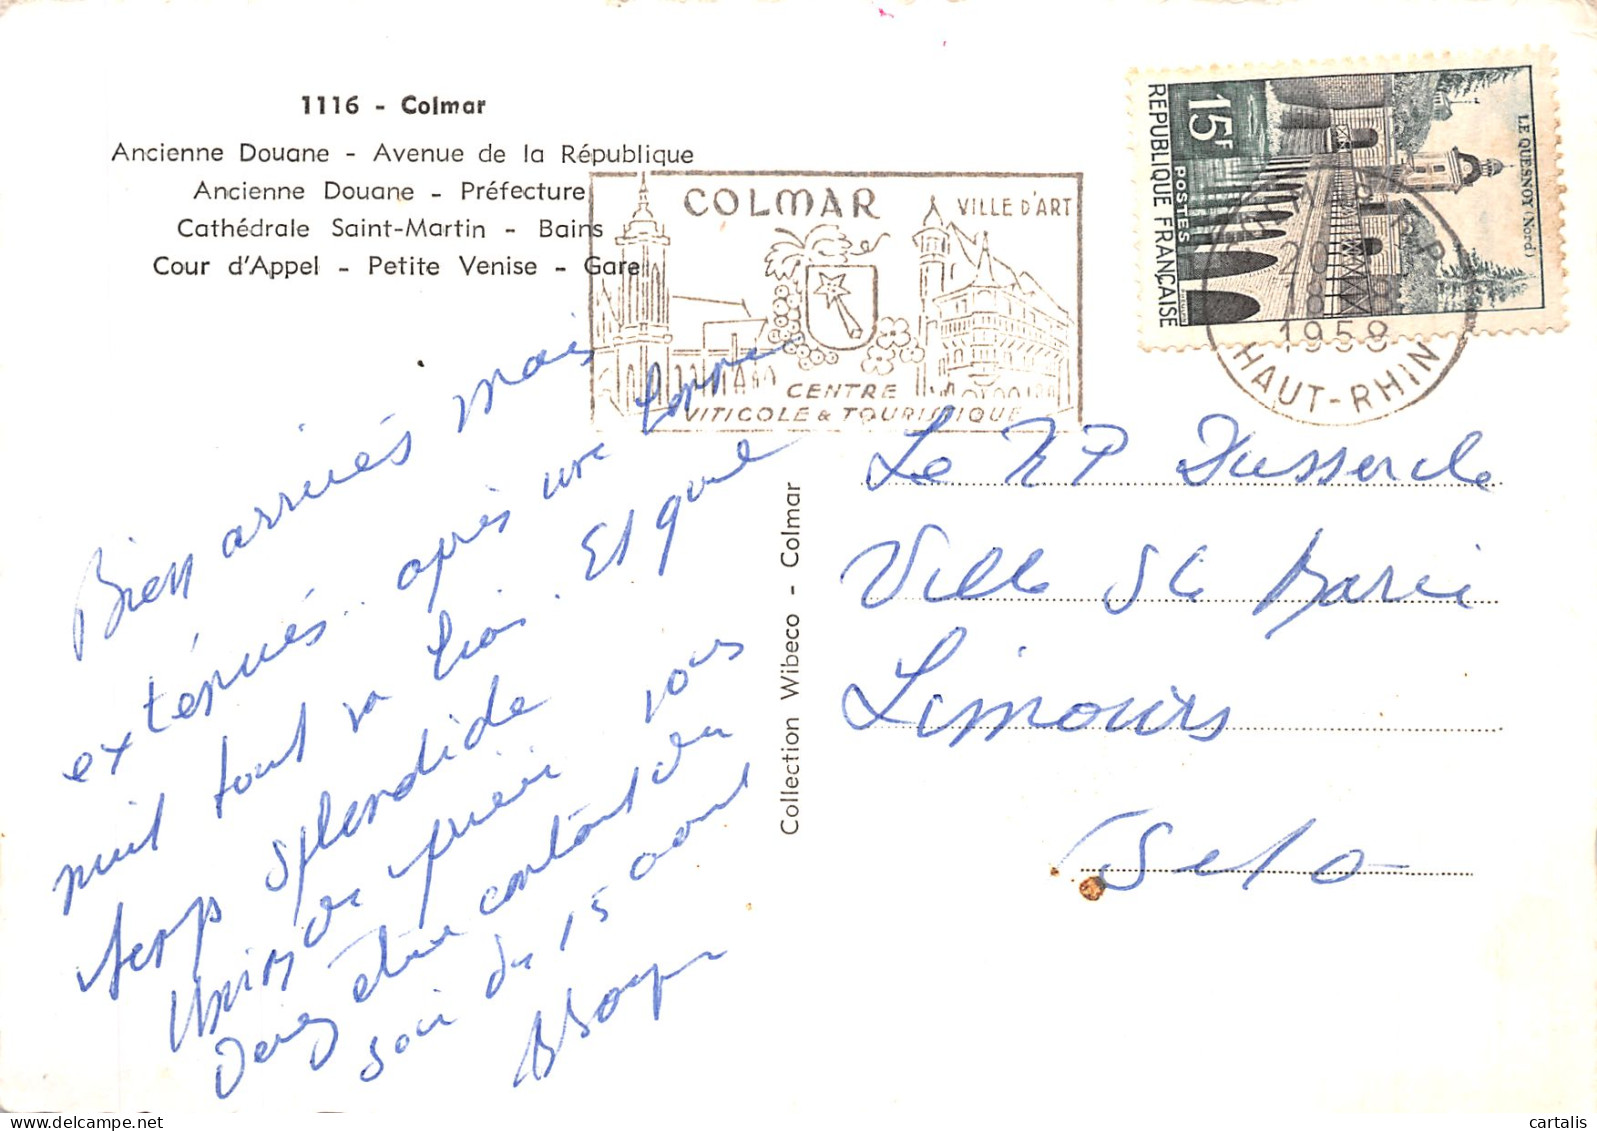 1116 - Colmar
Ancienne Douane - Avenue de la République
Ancienne Douane - Préfecture
Cathédrale Saint-Martin - Bains
Cour d'Appel - Petite Venise - Gare
COLMAR
VILLE D'ART
CENTRE
VITICOLE & TOURISTIQUE
15F
POSTES
REPUBLIQUE FRANÇAISE
LE QUESNOY (Nord)
COLMAR R.P.
20
18
1958
HAUT-RHIN
Bien arrivés mais
exténués après une longue
nuit tout va bien. Et quel
temps splendide
Union de prière vous
devez être content du
soir du 15 août
Collection Wibeco - Colmar
Le RP Dusserde
Villa Ste Marie
Limours
S et O
cartalis